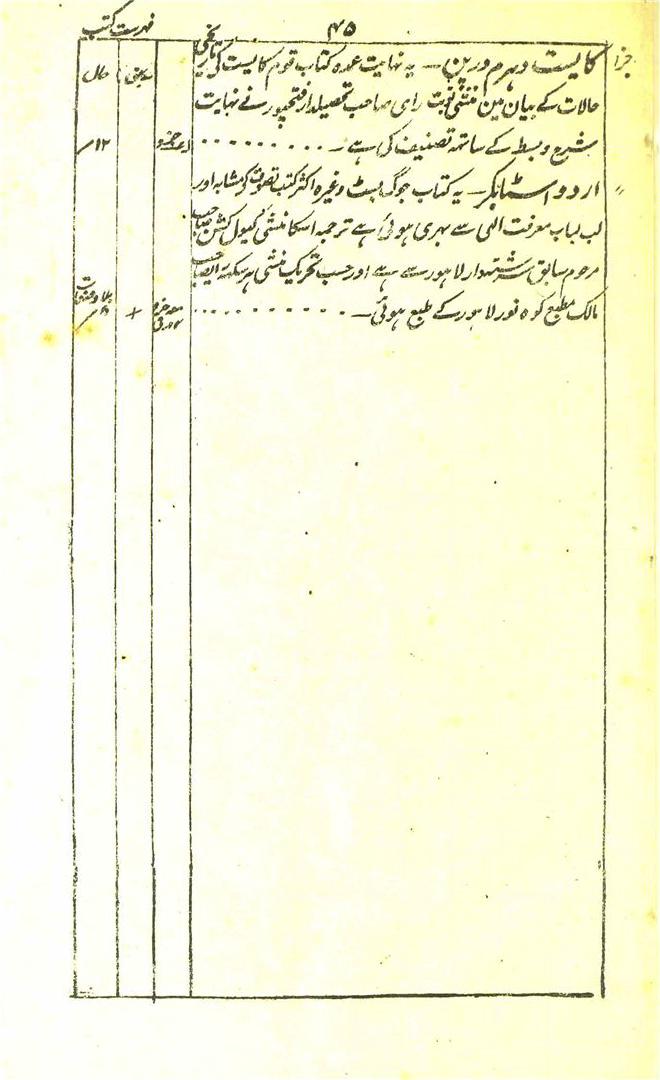 ۴۵
فہرست کتب
سابق حال
کایست دہرم درپن — یہ نہایت عمدہ کتاب قوم کایست کی تاریخی
حالات کے بیان مین منشی نوبت رای صاحب تحصیلدار فتحپور نے نہایت
شرح و بسط کے ساتھ تصنیف کی ہے — . . . . . . . . . ۱۲/
اردو اسٹابکر — یہ کتاب جوگ بسٹ وغیرہ اکثر کتب تصوف کو مشابہ اور
لب لباب معرفت الٰہی سے بہری ہوئی ہے ترجمہ اسکا منشی کیول کشن صاحب
مرحوم سابق سرشتہ دار لاہور سے ہے اور حسب تحریک منشی ہرسکہہ رای صاحب
مالک مطبع کوہ نور لاہور کے طبع ہوئی — . . . . . . . . . . . +